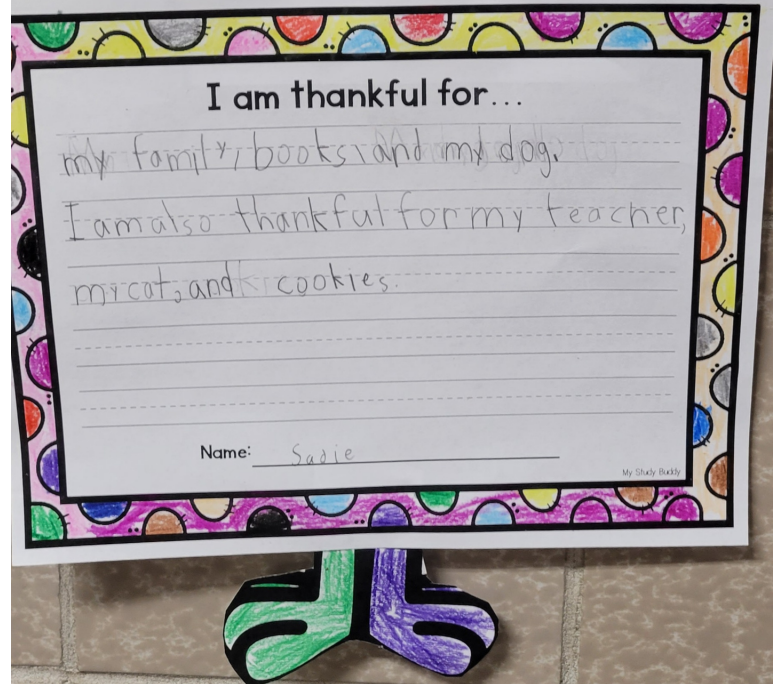 I am thankful for...
my family, books, and my dog.
I am also thankful for my teacher,
my cat, and cookies.
Name: Sadie
My Study Buddy